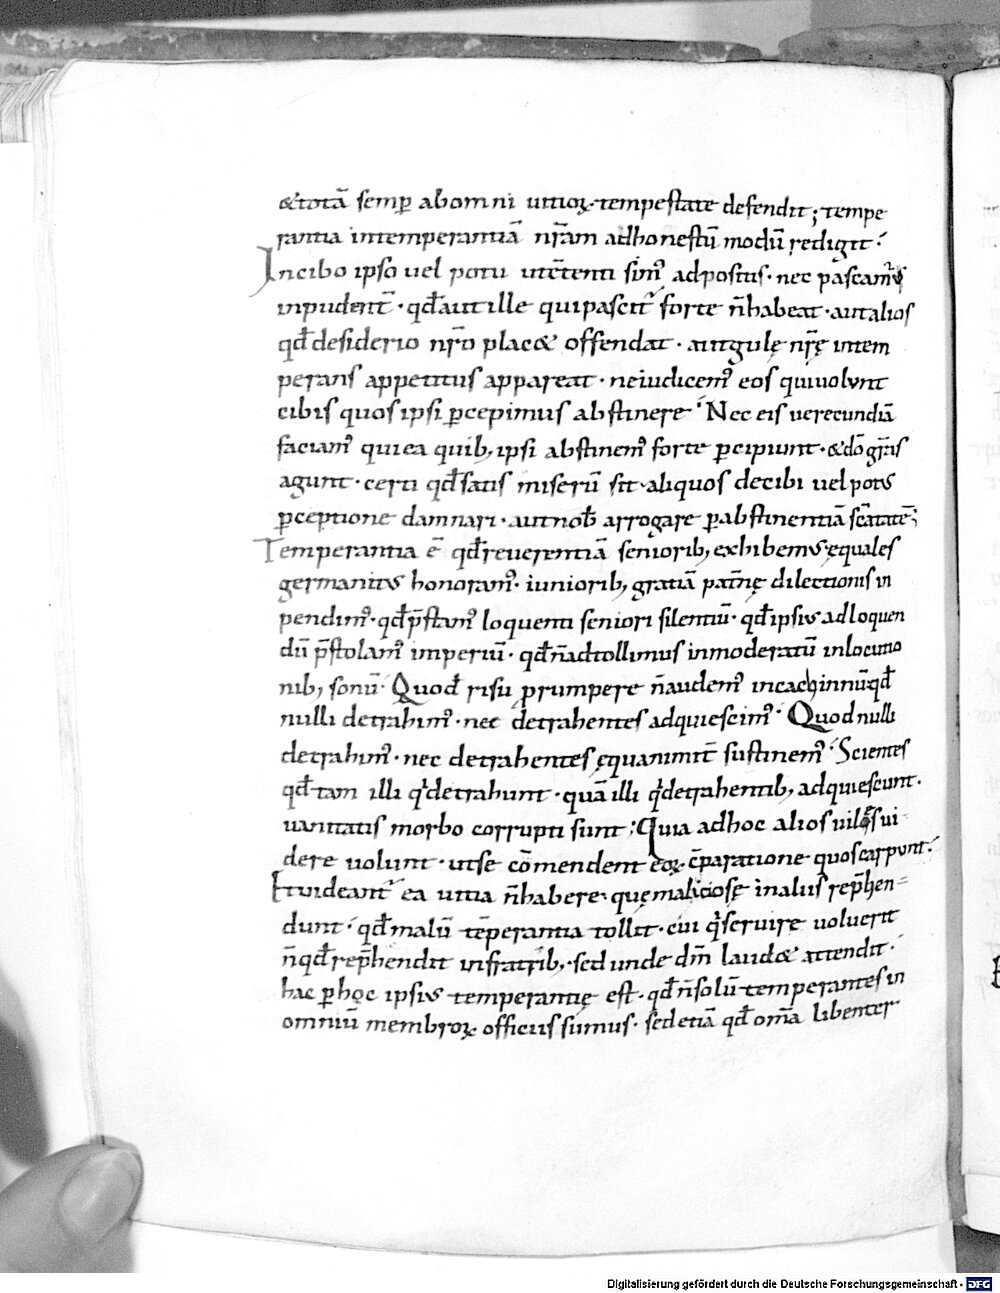 &totā semp̱ abomni uitioꝝ·tempestate defendit; tempe
rantia intemperantiā nr̄am adhonestū modū redigit·
Incibo ipso uel potu utētenti simꝰ adpositis· nec pascamꝰ
inpudent̄· qđaut ille quipascit᷑ forte n̄habeat·autalios
qđdesiderio nr̄o plac& offendat· autgulę nr̄ę intem
perans appetitus appareat·neiudicemꝰ eos quiuolunt
cibis quosipsi p̱cepimus abstinere· Nec eis uerecundiā
faciamꝰ quiea quib; ipsi abstinemꝰ forte p̱cipiunt·&dō gr̄as
agunt·certi qđsatis miserū sit·aliquos decibi uelpotus
p̱ceptione damnari·autnob̄ arrogare p̱abstinentiā sc̄itatē;
Temperantia ē qđreuerentiāseniorib; exhibemus·ęquales
germanitus honoramꝰ·iuniorib; gratiā patr̄nę dilectionis in
pendimꝰ·qđp̄stamꝰ loquenti seniori silentiū·qđipsius adloquen
dū p̄stolamꝰ imperiū·qđn̄adtollimus inmoderatū inlocutio
nib; sonū· Quođ risu prumpere n̄audemꝰ incachinnū·qđ
nulli detrahimꝰ·nec detrahentes adquiescimꝰ· Quod nulli
detrahimꝰ·nec detrahentes ęquanimit̄ sustinemꝰ· Scientes
qđ·tam illi q̇detrahunt·quā illi q̇detrahentib; adquiescunt·
uanitatis morbo corrupti sunt; Quia adhoc alios uiles ui
dere uolunt·utse cōmendent eoꝝ·c̄paratione quoscarpunt·
Etuideant᷑ ea uitia n̄habere·quęmaliciosę inaliis rep̄hen
dunt· qđmalū tēperantia tollit·cui q̇seruire uoluerit
n̄qđrep̄hendit infratrib;·sed unde dm̄ laud& attendit·
hac p̱hęc ipsius temperantię est·qđn̄solū temperantes in
omniū membroꝝ officiis simus·sedetiā qđ om̄a libenter
Digitalisierung gefördert durch die Deutsche Forschungsgemeinschaft · DFG